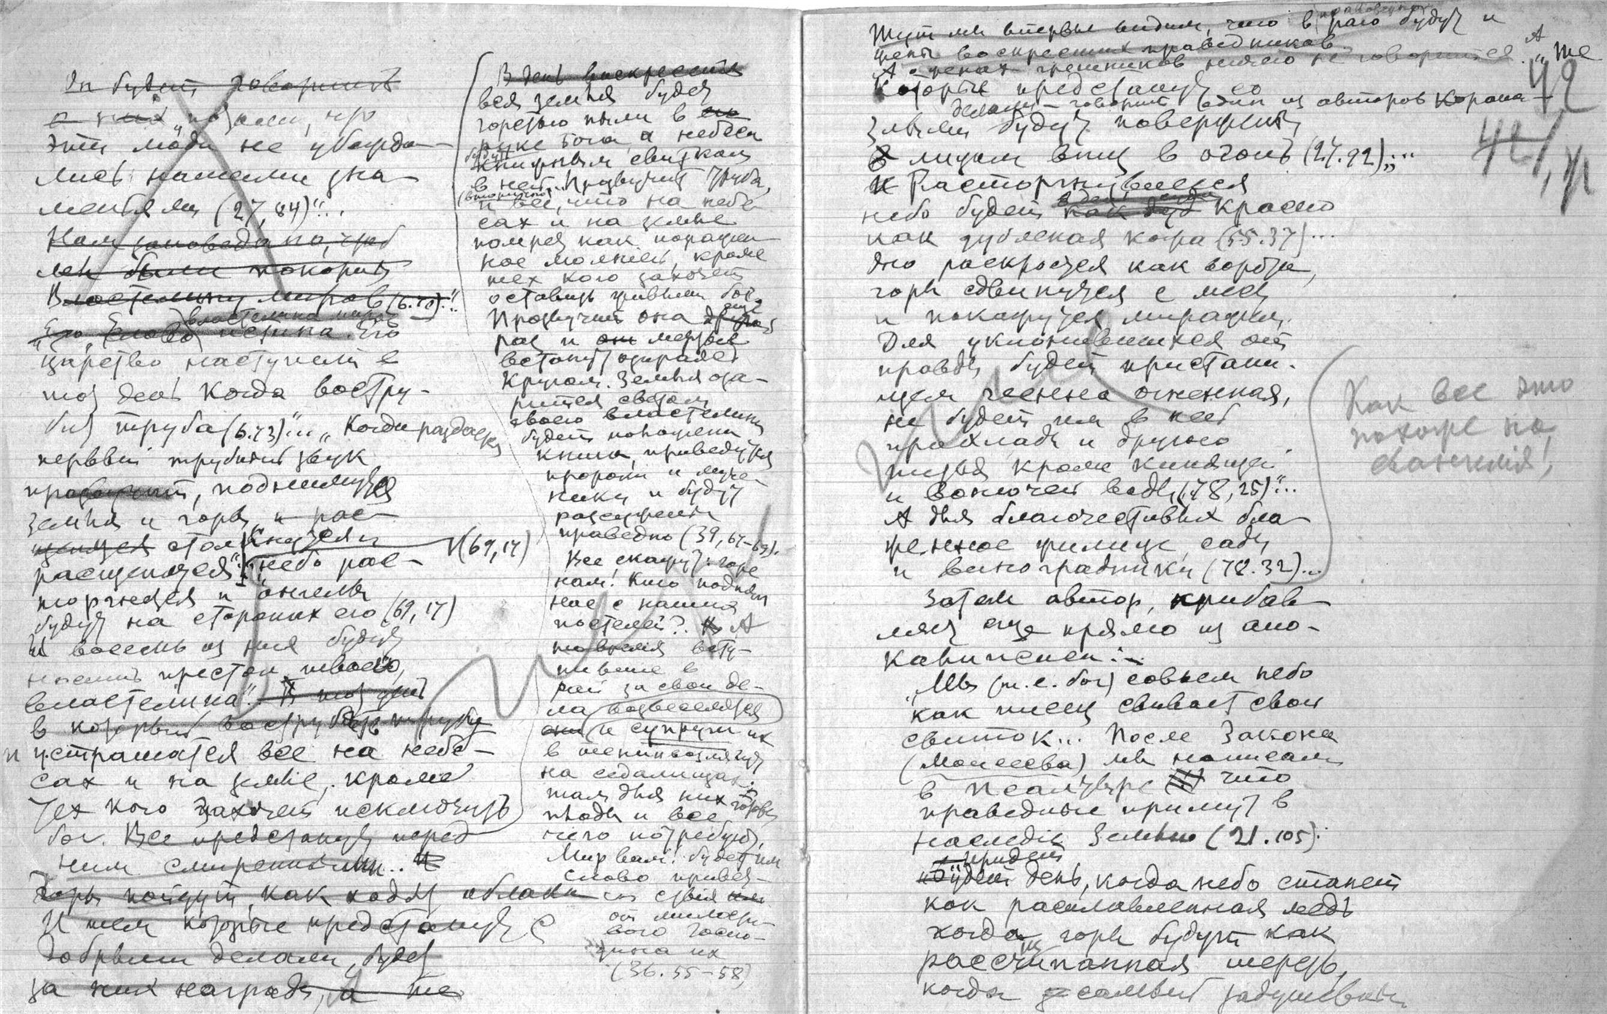 Он будет говорить
с ними позами, что
Эти люди не убежда-
лись нашими зна-
меньями (27,84)"...
Нам заповедано, чтоб
мы были покорны
Властелину миров (6.70)."
властелина миров
"Его слово истина. Его
царство наступит в
тот день когда востру-
бит труба (6.73)"... "Когда раздастся
первый трубный звук
поднимутся
земля и горы и рас-
столкнутся и
расщепятся", небо рас- (69,14)
торгнется и ангелы
будут на сторонах его (69,17)
И восемь из них будут
носить престол твоего,
властелина". В тот день
в который вострубят трубу
и устрашатся все на небе-
сах и на земле, кроме
тех кого захочет исключить
бог. Все предстанут перед
ним смиренными..
Горы пойдут, как ходят облака
И тем которые предстанут с
Добрыми делами, будет
за них награда, а те
В день воскресенья
вся земля будет
горстью пыли в его
руке бога, а небеса
будут
книжным свитком
в ней. Прозвучит труба,
и все, что на небе-
сах и на земле
помрет как поражен-
ное молнией, кроме
тех кого захочет
оставить живыми бог.
Прозвучит она еще
раз и они мертвые
встанут озираясь
Кругом. Земля оза-
рится светом
своего властелина
будет положена
книга, приведутся
пророки и муче-
ники и будут
рассужены
праведно (39,67-69).
Все скажут: горе
нам. Кто поднял
нас с нашей
постели? А
тов время всту-
пившие в
рай за свои де-
ла возвеселятся
они и супруги их
в тени возлягут
на седалищах.
там для них готовы
плоды и все
чего потребуют,
Мир вам! будет им
слово привет-
ствия
от милости-
вого госпо-
дина их
(36.55-58)
Тут мы впервые видим, что в раю будут и
жены воскресших праведников
А о женах грешников ничего не говорится. "А те
Которые предстанут со
делами - говорит один из авторов Корана -
злыми будут повергнуты
лицом вниз в огонь (27.92)"...
Расторгнувшееся
небо будет красно
как дубленая кожа (55.37)...
Оно раскроется как ворота,
горы сдвинутся с мест
и покажутся миражем.
Для уклонившихся от
правды будет пристани-
щем геенна огненная,
не будет им в ней
прохлады и другого
питья кроме кипящей
и вонючей воды (78,25)"...
А для благочестивых бла-
женное жилище, сады
и виноградники (78.32)...
Затем автор, прибав-
ляет еще прямо из апо-
калипсиса:
"Мы (т.е. бог) совьем небо
как писец свивает свой
свиток... После Закона
(Моисеева) мы написали
в псалтире что
праведные примут в
наследие Землю (21.105):
придет
день, когда небо станет
как расплавленная медь
когда горы будут как
рассчипанная шерсть,
когда самый задушевный
42
Как все это
похоже на
евангелия!